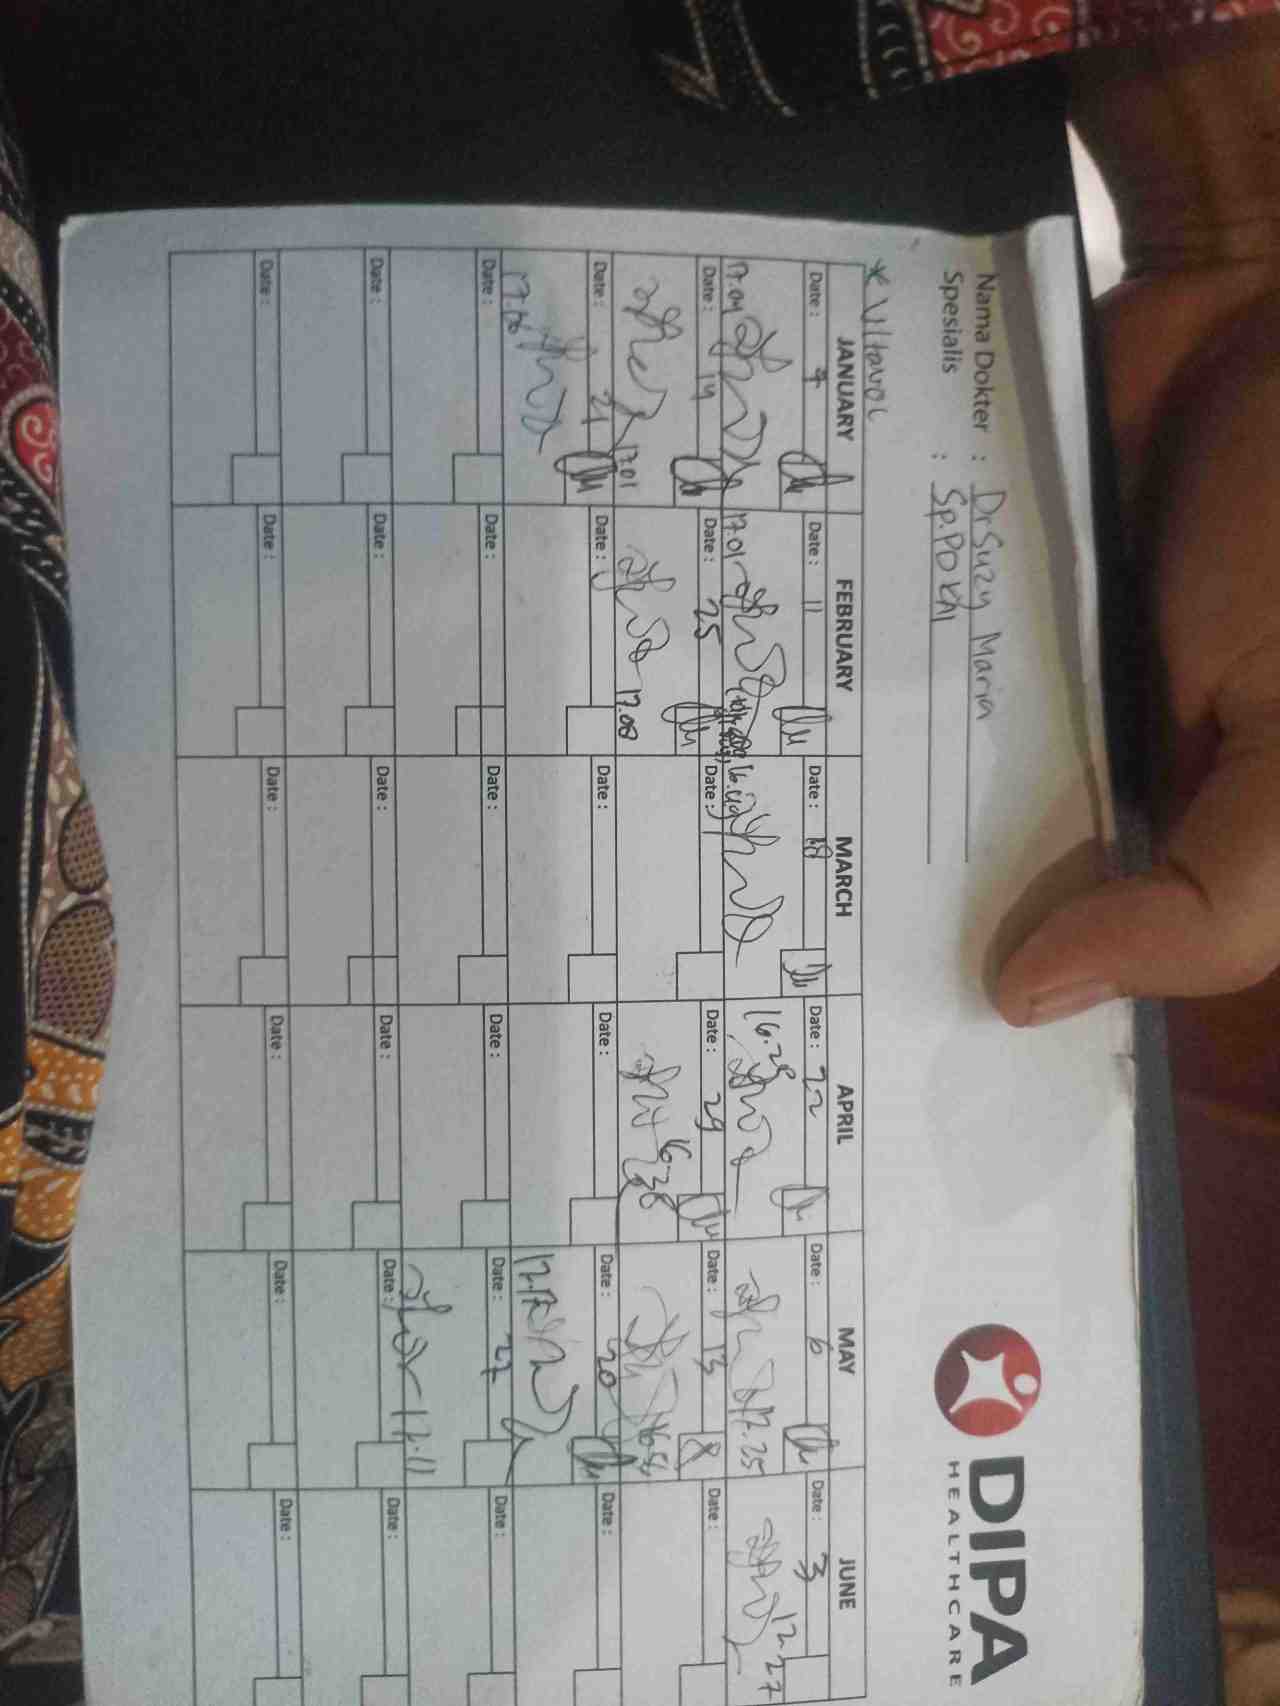 DIPA
HEALTHCARE
Nama Dokter : Dr Suzy Maria
Spesialis : Sp.PD KHI
* Ultavac
JANUARY FEBRUARY MARCH APRIL MAY JUNE
Date : 7 Date : 11 Date : 18 Date : 22 Date : 6 Date : 3
17.04 17.01 16.49 16.28 17.25 12.27
Date : 14 Date : 25 Date : Date : 29 Date : 13 Date :
17.01 17.08 16.38
Date : 21 Date : Date : Date : Date : 20 Date :
17.06 12.17
Date : Date : Date : Date : Date : 27 Date :
12.11
Date : Date : Date : Date : Date : Date :
Date : Date : Date : Date : Date : Date :